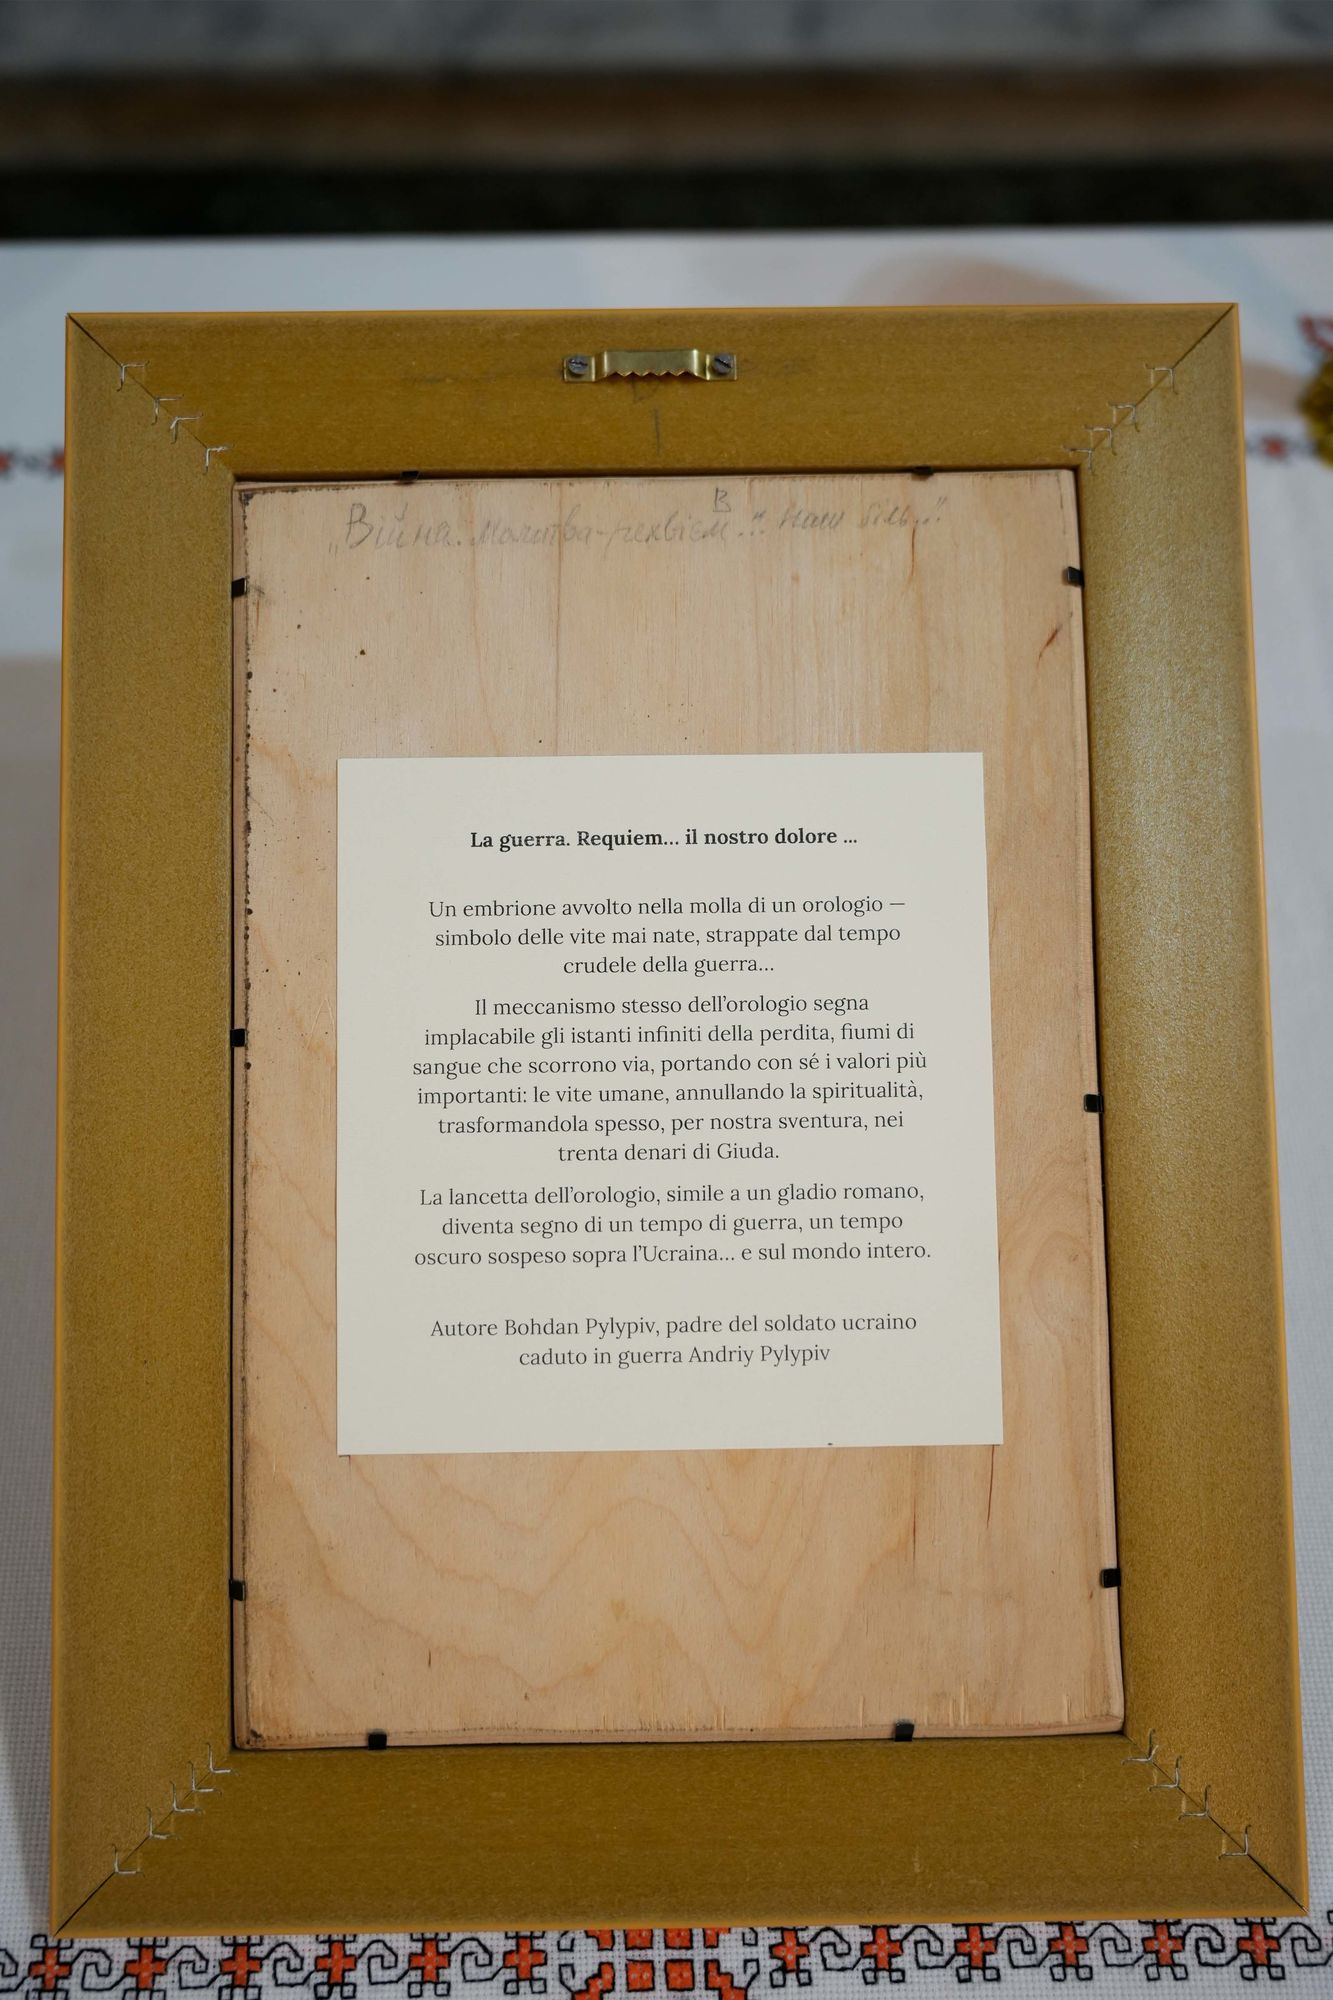 „Війна. Молитва-реквієм..." Наш біль..."
В
La guerra. Requiem... il nostro dolore ...
Un embrione avvolto nella molla di un orologio —
simbolo delle vite mai nate, strappate dal tempo
crudele della guerra...
Il meccanismo stesso dell'orologio segna
implacabile gli istanti infiniti della perdita, fiumi di
sangue che scorrono via, portando con sé i valori più
importanti: le vite umane, annullando la spiritualità,
trasformandola spesso, per nostra sventura, nei
trenta denari di Giuda.
La lancetta dell'orologio, simile a un gladio romano,
diventa segno di un tempo di guerra, un tempo
oscuro sospeso sopra l'Ucraina... e sul mondo intero.
Autore Bohdan Pylypiv, padre del soldato ucraino
caduto in guerra Andriy Pylypiv